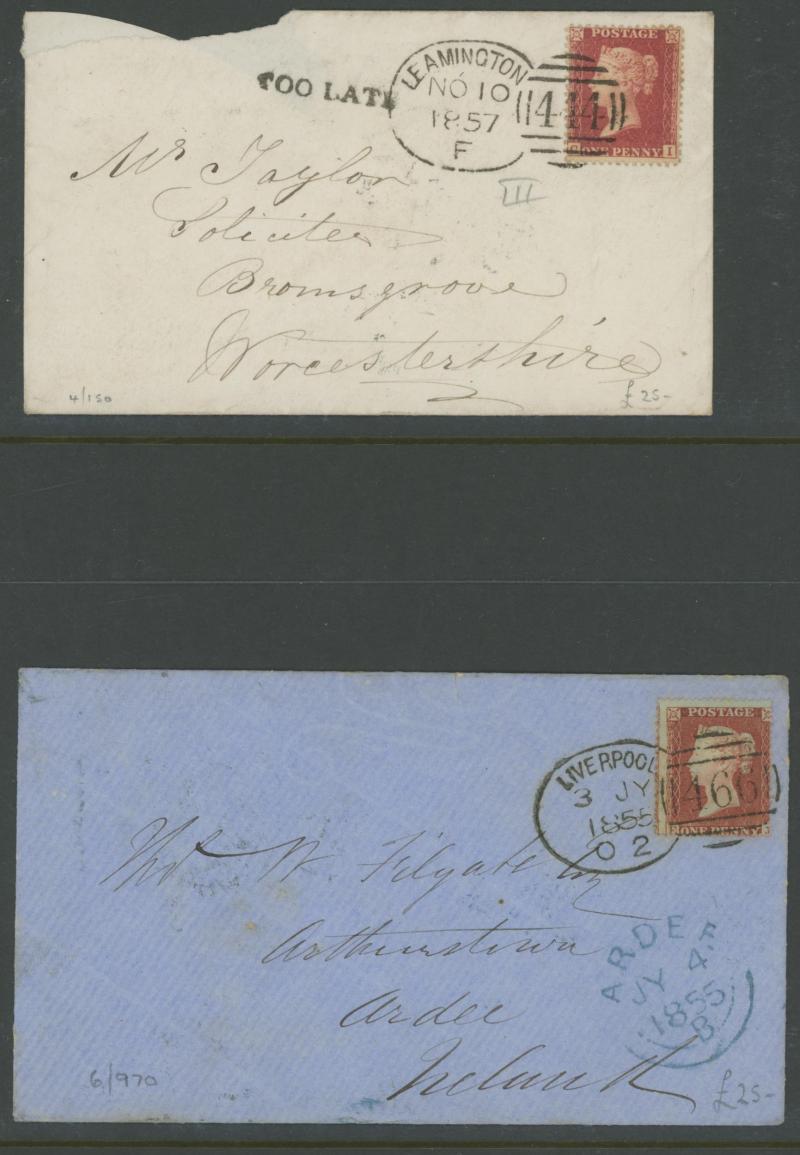 TOO LATE
LEAMINGTON
NO 10
1857
F
444
POSTAGE
ONE PENNY
I
Mr Taylor
III
Solicitor
Bromsgrove
Worcestershire
4/150
£25-
LIVERPOOL
3 JY
1855
O 2
466
POSTAGE
ONE PENNY
Thos W Filgate Esq
Arthurstown
Ardee
Ireland
ARDEE
JY 4
1855
B
6/970
£25-